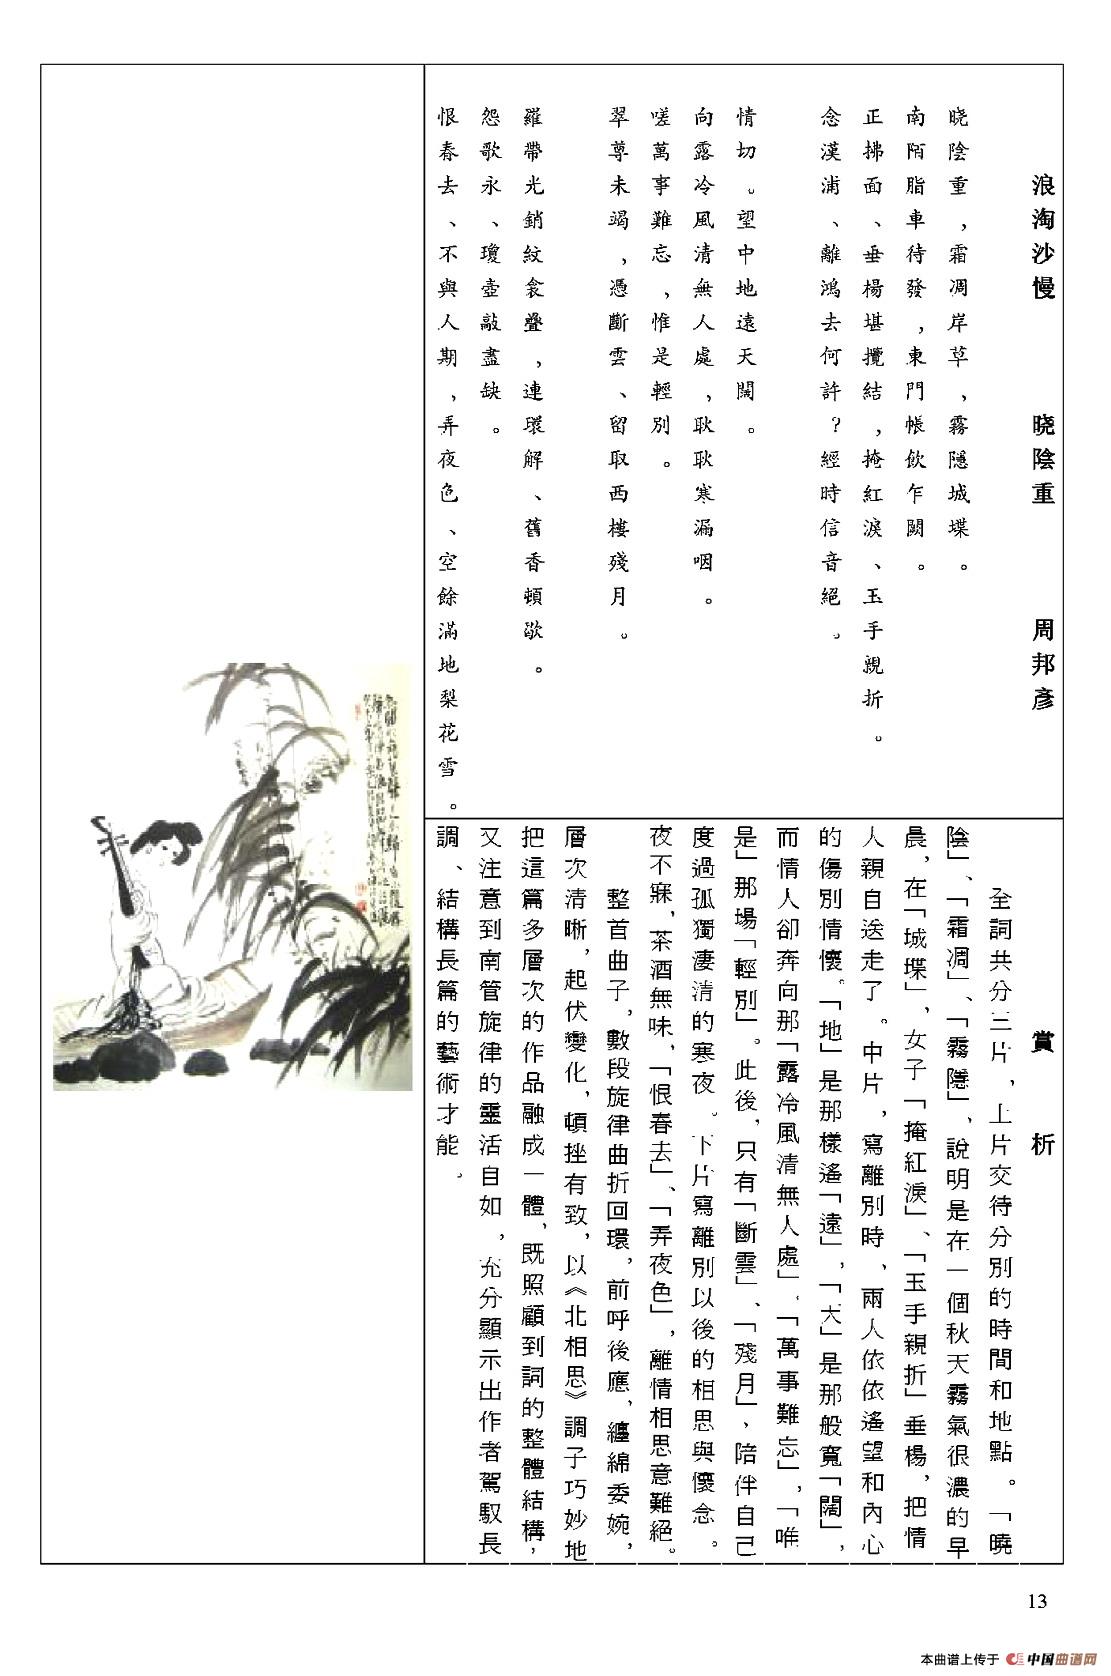 浪淘沙慢 晓陰重 周邦彥
晓陰重，霜凋岸草，霧隱城堞。
南陌脂車待發，東門帳飲乍闋。
正拂面、垂楊堪攬結，掩紅淚、玉手親折。
念漢浦、離鴻去何許？經時信音絕。
情切。望中地遠天闊。
向露冷風清無人處，耿耿寒漏咽。
嗟萬事難忘，惟是輕別。
翠尊未竭，憑斷雲、留取西樓殘月。
羅帶光銷紋衾疊，連環解、舊香頓歇。
怨歌永、瓊壺敲盡缺。
恨春去、不與人期，弄夜色、空餘滿地梨花雪。
賞析
全詞共分三片，上片交待分別的時間和地點。「曉
陰」、「霜凋」、「霧隱」，說明是在一個秋天霧氣很濃的早
晨，在「城堞」，女子「掩紅淚」、「玉手親折」垂楊，把情
人親自送走了。中片，寫離別時、兩人依依遙望和內心
的傷別情懷。「地」是那樣遙「遠」，「天」是那般寬「闊」，
而情人卻奔向那「露冷風清無人處」，「萬事難忘」，「唯
是」那場「輕別」。此後，只有「斷雲」、「殘月」，陪伴自己
度過孤獨淒清的寒夜。下片寫離別以後的相思與懷念。
夜不寐，茶酒無味，「恨春去」、「弄夜色」，離情相思意難絕。
整首曲子，數段旋律曲折回環，前呼後應，纏綿委婉，
層次清晰，起伏變化，頓挫有致，以《北相思》調子巧妙地
把這篇多層次的作品融成一體，既照顧到詞的整體結構，
又注意到南管旋律的靈活自如，充分顯示出作者駕馭長
調、結構長篇的藝術才能。
13
本曲谱上传于 中国曲谱网